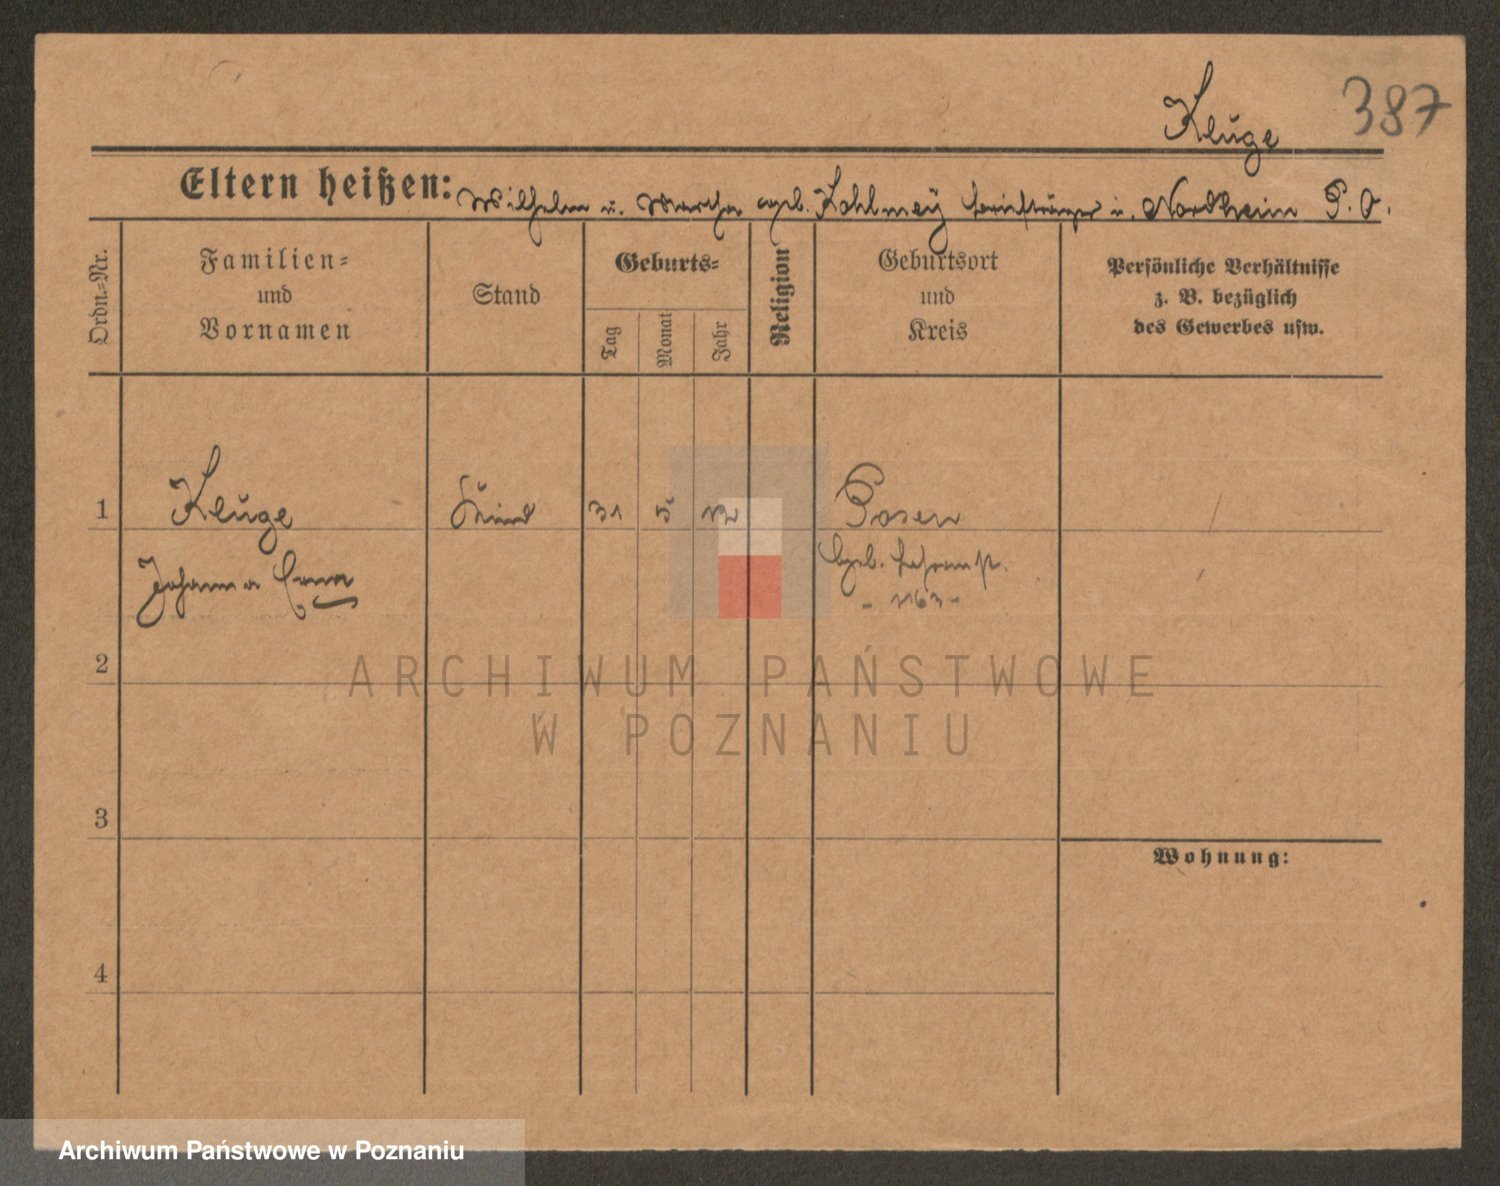 Kluge 387
Eltern heißen: Wilhelm u. Martha geb. Kohlmey Briefträger in Nordheim P. O.
Ordn.-Nr.
Familien-
und
Vornamen
Stand
Geburts-
Tag
Monat
Jahr
Religion
Geburtsort
und
Kreis
Persönliche Verhältnisse
z. B. bezüglich
des Gewerbes usw.
1 Kluge Kind 31 5 12 Posen
Johanna Erna
2
ARCHIWUM PAŃSTWOWE
W POZNANIU
3
Wohnung:
4
Archiwum Państwowe w Poznaniu